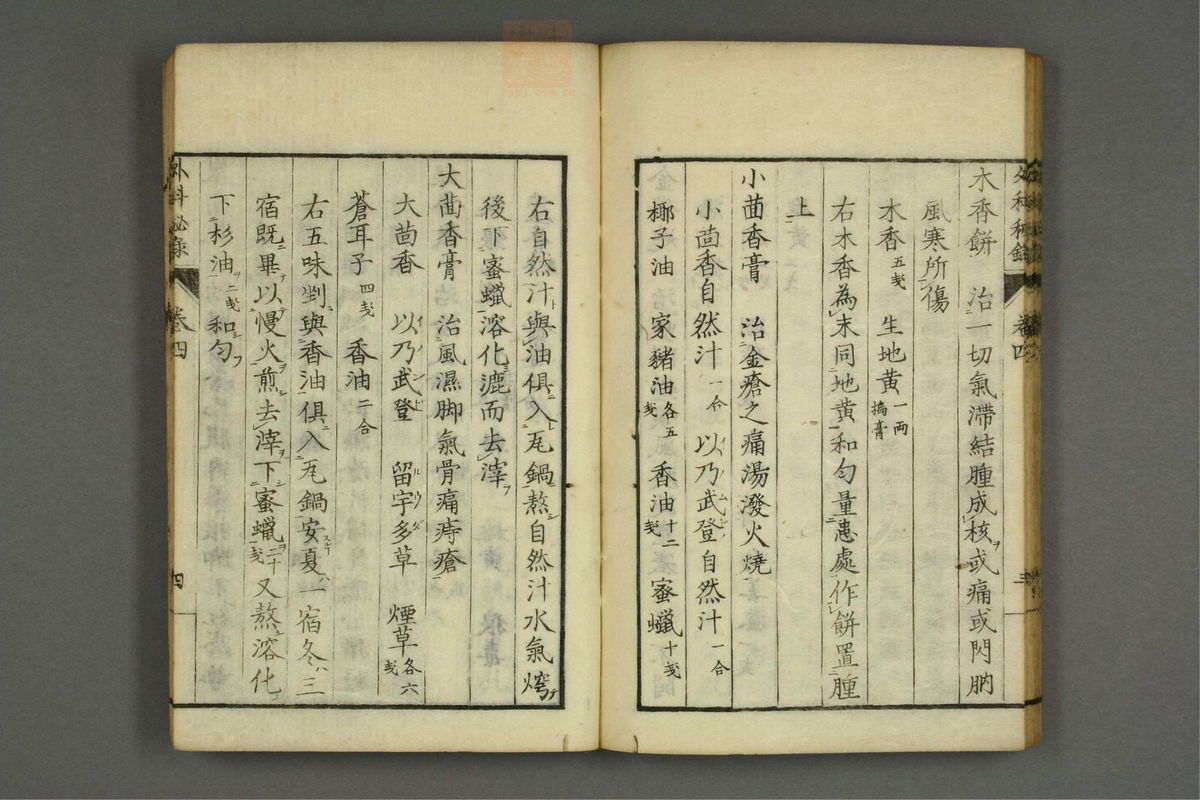 木香餅 治一切氣滯結腫成核或痛或閃朒
風寒所傷
木香五戔 生地黃一兩搗膏
右木香為末同地黃和勻量患處作餅置腫
上
小茴香膏 治金瘡之痛湯潑火燒
小茴香自然汁一合 以乃武登自然汁一合
椰子油 家豬油各五戔 香油十二戔 蜜蠟十戔
外科秘錄 卷四 三
右自然汁與油俱入瓦鍋熬自然汁水氣焞
後下蜜蠟溶化漉而去滓
大茴香膏 治風濕脚氣骨痛痔瘡
大茴香 以乃武登 留宇多草 煙草各六戔
蒼耳子四戔 香油二合
右五味剉與香油俱入瓦鍋安夏一宿冬三
宿既畢以慢火煎去滓下蜜蠟二十戔又熬溶化
下杉油二戔和勻
外科秘錄 卷四 四